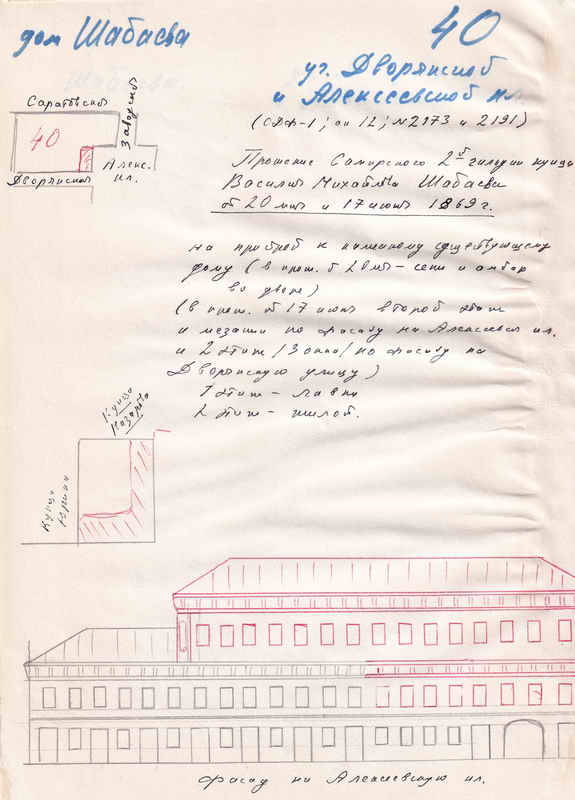 дом Шабаева
40
уг. Дворянской
и Алексеевской пл.
(СДФ-1; оп 12; №2173 и 2191)
Саратовской
Заводской
40
Алекс.
пл.
Дворянской
Прошение Самарского 2й гильдии купца
Василия Михайлова Шабаева
от 20 мая и 17 июня 1869 г.
на пристрой к каменному существующему
дому (в прош. от 20 мая - сени и амбар
во дворе)
(в прош. от 17 июня второй этаж
и мезанин по фасаду на Алексеевск пл.
и 2 этаж /3 окна/ по фасаду на
Дворянскую улицу)
1 этаж - лавки
2 этаж - жилой.
Купца
Назарова
Купца
фасад на Алексеевскую пл.